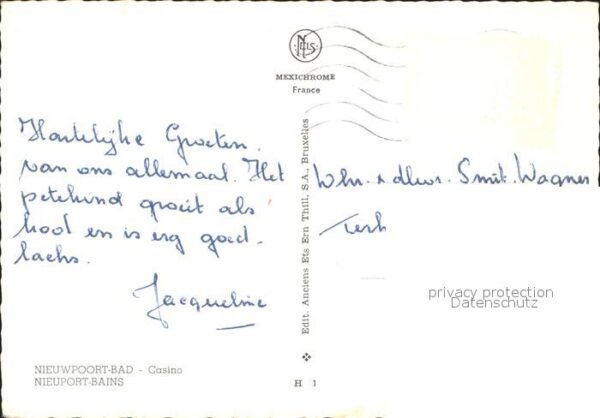 NELS
MEXICHROME
France
Hartelijke Groeten
van ons allemaal. Het
petekind groeit als
kool en is erg goed
lachs.
Jacqueline
Edit. Anciens Ets Ern Thill, S.A., Bruxelles
Smit. Wagner
privacy protection
Datenschutz
NIEUWPOORT-BAD - Casino
NIEUPORT-BAINS
H 1